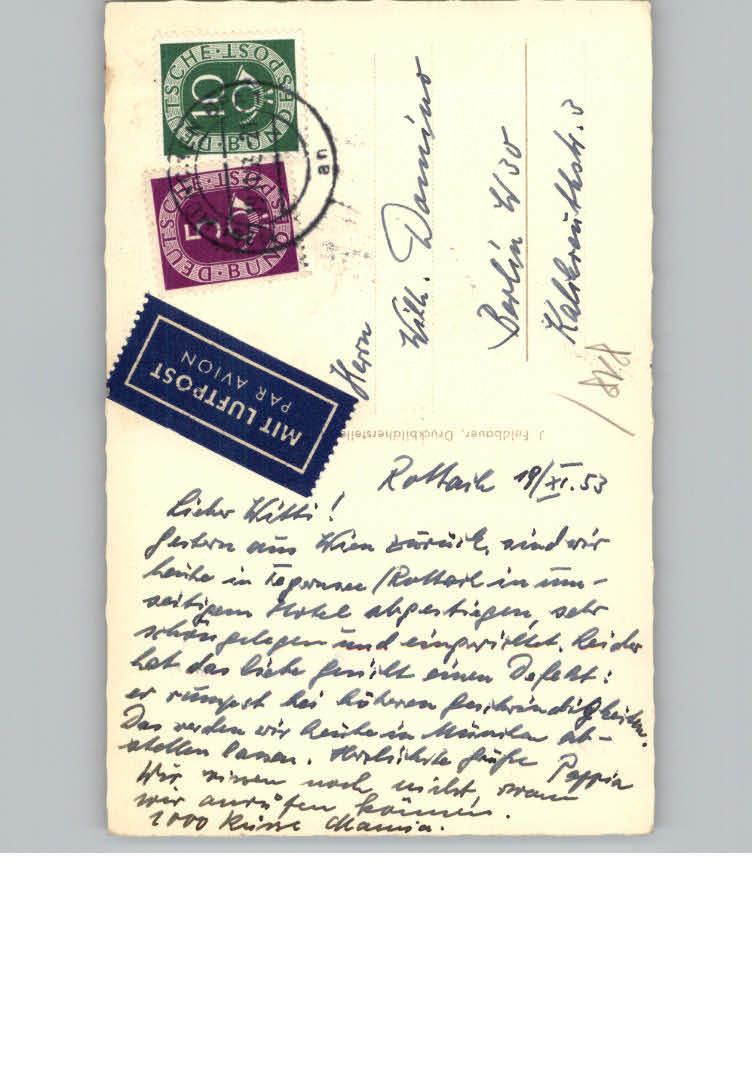 DEUTSCHE BUNDESPOST
10
DEUTSCHE BUNDESPOST
5
an
MIT LUFTPOST
PAR AVION
Herrn
Willi. Domino
Berlin W 30
Kalkreuthstr. 3
J. Feldbauer, Druckbildherstelle
Rottach 19/XI.53
Lieber Witti!
Gestern aus Wien zurück, sind wir
heute in Tegernsee/Rottach in um-
seitigem Hotel abgestiegen, sehr
schön gelegen und eingerichtet. Leider
hat das liebe Gesicht einen Defekt:
er rumpst bei höheren Geschwindigkeiten.
Das werden wir heute in München ab-
stellen lassen. Herzlichste Grüße Pappia
Wir wissen noch nicht, wann
wir anrufen können.
1000 Küsse Mamia.